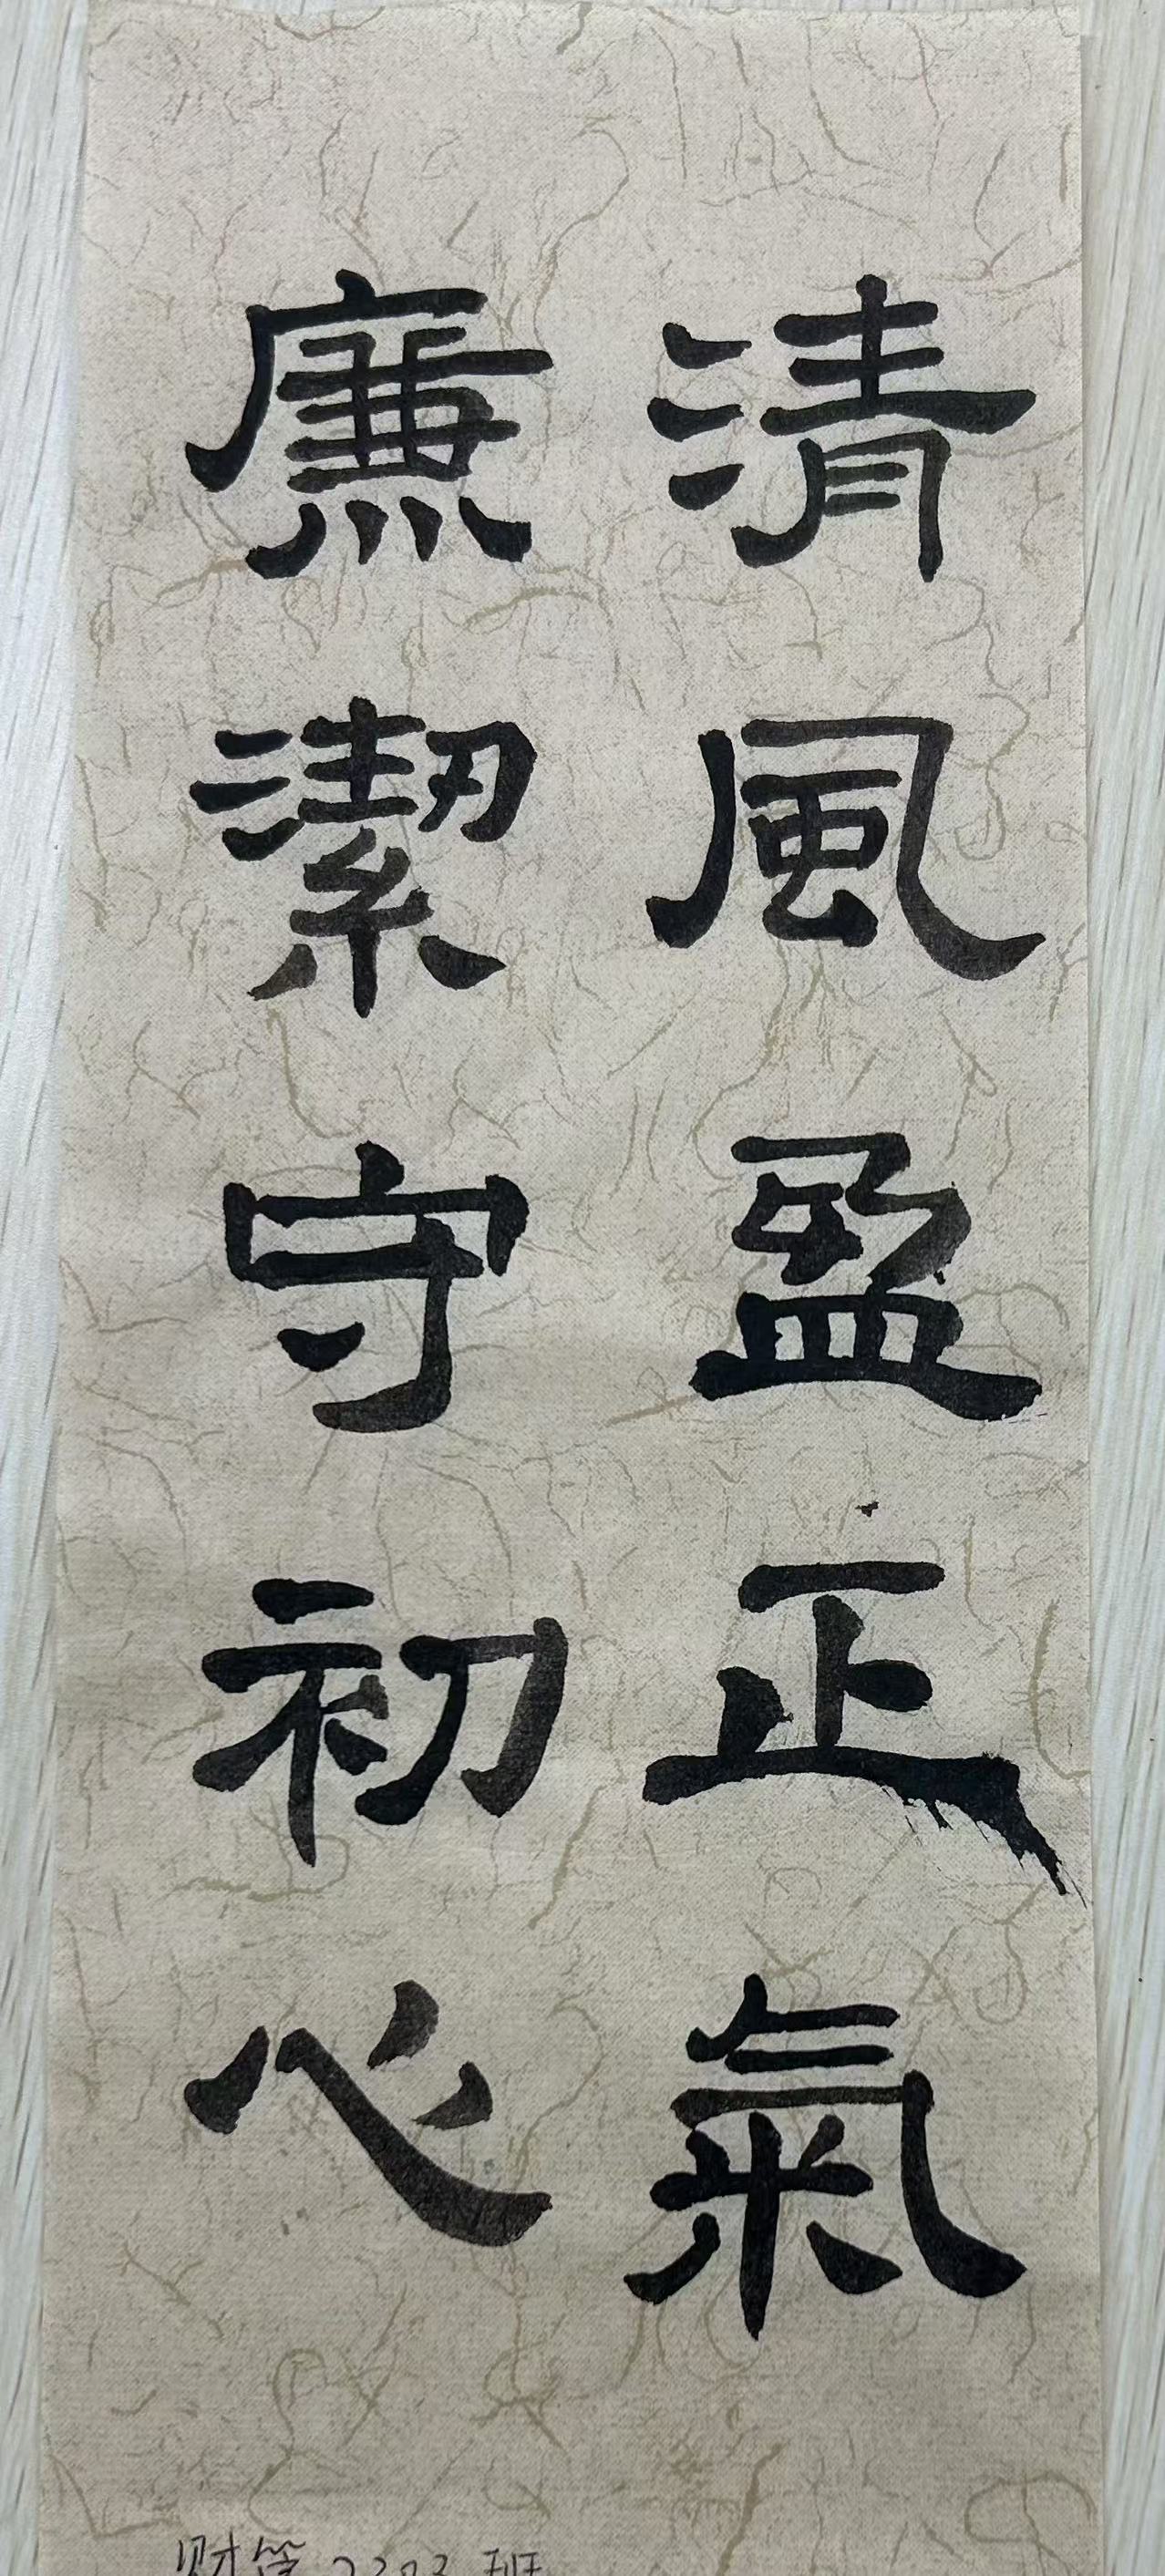 清風盈正氣
廉潔守初心
财管2303班